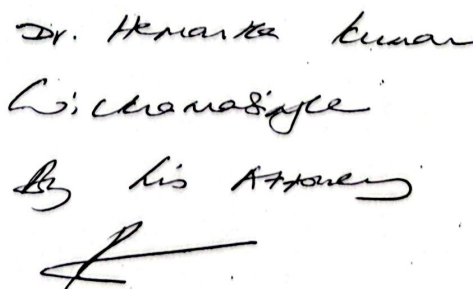 Dr. Hemantha Kumar
Wickramasinghe
By his Attorney